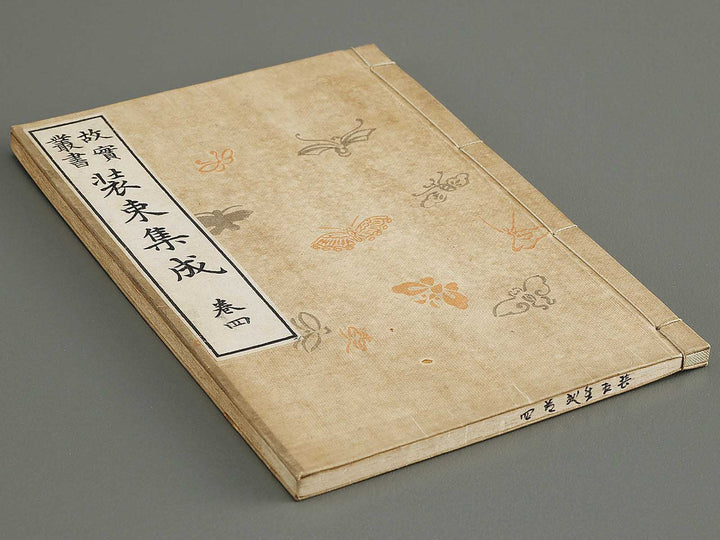 故實
叢書
装束集成
卷四
装束集成卷四